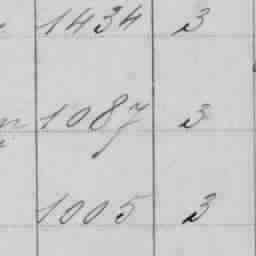 1434 3
1087 3
1005 3